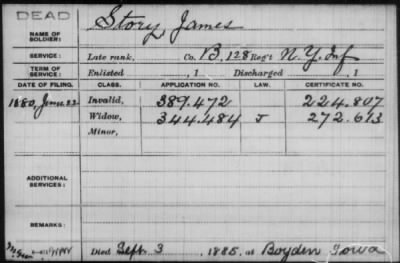 DEAD
NAME OF SOLDIER: Story, James
SERVICE: Late rank, Co. B, 128 Reg't N.Y. Inf
TERM OF SERVICE: Enlisted , 1 Discharged , 1
DATE OF FILING. CLASS. APPLICATION NO. LAW. CERTIFICATE NO.
1880, June 22 Invalid, 389.472 224.807
Widow, 344.484 J 272.613
Minor,
ADDITIONAL SERVICES:
REMARKS:
Died Sept. 3, 1885, at Boyden Iowa